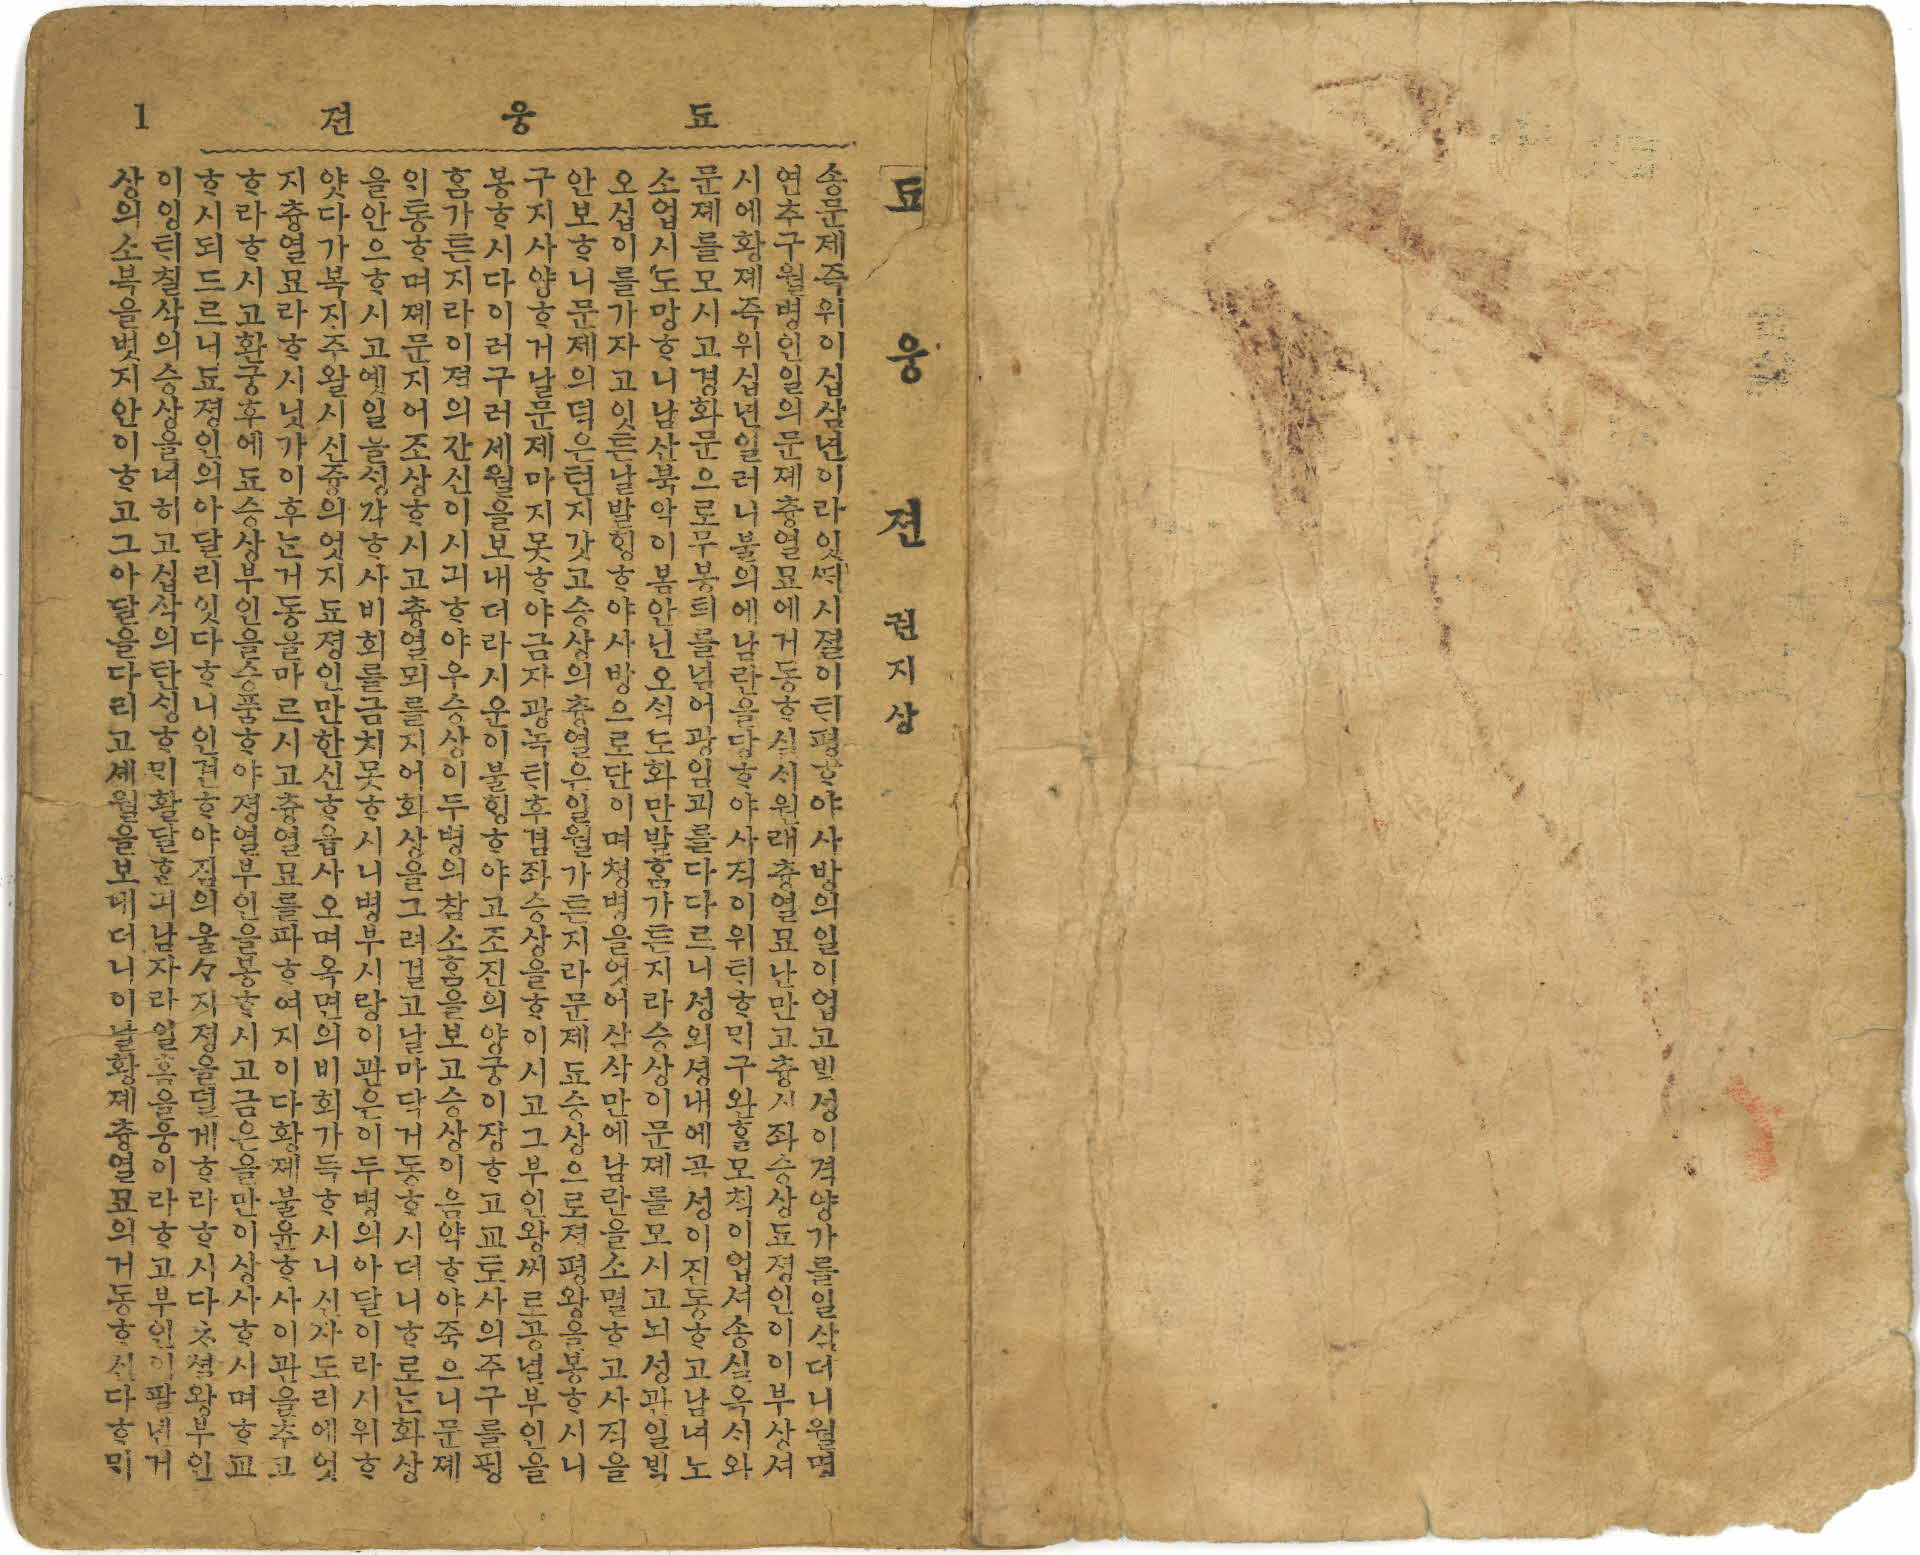 됴웅젼 1
됴웅젼 권지상
송문제즉위이십삼년이라잇ᄯᆡ시졀이ᄐᆡ평ᄒᆞ야사방의일이업고ᄇᆡᆨ셩이격양가를일삼더니월명
연추구월병인일의문졔츙열묘에거동ᄒᆞ실ᄉᆡ원래츙열묘난만고츙신좌승상됴졍인이이부상셔
시에황졔즉위십년일러니불의에남란을당ᄒᆞ야사직이위ᄐᆡᄒᆞᄆᆡ구완ᄒᆞᆯ모ᄎᆡᆨ이업셔송실옥ᄉᆡ와
문졔를모시고경화문으로무봉ᄐᆡ를넘어광임괴를다다르니셩외셩내에곡셩이진동ᄒᆞ고남녀노
소업시도망ᄒᆞ니남산북악이봄안닌오ᄉᆡᆨ도화만발홈가튼지라승상이문졔를모시고뇌셩관일ᄇᆡᆨ
오십이를가자고잇튼날발ᄒᆡᆼᄒᆞ야사방으로단이며쳥병을엇어산삭만에남란을소멸ᄒᆞ고사직을
안보ᄒᆞ니문제의덕은텬지갓고승상의츙열은일월가튼지라문졔됴승상으로졍평왕을봉ᄒᆞ시니
구지사양ᄒᆞ거날문제마지못ᄒᆞ야금자광녹ᄐᆡ후겸좌승상을ᄒᆞ이시고그부인왕씨로공녈부인을
봉ᄒᆞ시다이러구러세월을보내더라시운이불ᄒᆡᆼᄒᆞ야고조진의양궁이장ᄒᆞ고교토사의주구를ᄑᆡᆼ
홈가튼지라이젹의간신이시긔ᄒᆞ야우승상이두병의참소홈을보고승상이음약ᄒᆞ야죽으니문졔
ᄋᆡ통ᄒᆞ며졔문지어조상ᄒᆞ시고츙열묘를지어화상을그려걸고날마닥거동ᄒᆞ시더니ᄒᆞ로는화상
을안으ᄒᆞ시고옛일늘ᄉᆡᆼ각ᄒᆞ사비회를금치못ᄒᆞ시니병부시랑이관은이두병의아달이라시위ᄒᆞ
얏다가복지주왈시신즁의엇지됴졍인만한신ᄒᆞ읍사오며옥면의비회가득ᄒᆞ시니신자도리에엇
지츙열묘라ᄒᆞ시닛가이후는거동을마르시고츙열묘를파ᄒᆞ여지이다황졔불윤ᄒᆞ사이관을추고
ᄒᆞ라ᄒᆞ시고환궁후에됴승상부인을승품ᄒᆞ야졍열부인을봉ᄒᆞ시고금은을만이상사ᄒᆞ시며ᄒᆞ교
ᄒᆞ시되드르니됴졍인의아달리잇다ᄒᆞ니인견ᄒᆞ야짐의울々지졍을덜게ᄒᆞ라ᄒᆞ시다ᄎᆞ셜왕부인
이잉ᄐᆡ칠삭의승상을녀히고십삭의탄ᄉᆡᆼᄒᆞᄆᆡ활달ᄒᆞᆫ긔남자라일홈을웅이라ᄒᆞ고부인이팔년거
상의소복을벗지안이ᄒᆞ고그아달을다리고셰월을보내더니이날황졔츙열묘의거동ᄒᆞ신다ᄒᆞᄆᆡ